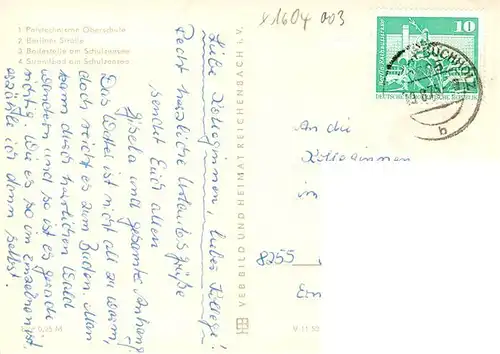 1 Polytechnische Oberschule
2 Berliner Straße
3 Badestelle am Schulzensee
4 Strandbad am Schulzensee
x1604 003
10
DEUTSCHE
BUCHHOLZ
b
Liebe Kolleginnen, lieber Kollege!
Recht herzliche Urlaubsgrüße
sendet Euch allen
Gisela und gesamter Anhang
Das Wetter ist nicht all zu warm,
doch reicht es zum Baden. Man
kann durch herrlichen Wald
wandern und so ist es gerade
richtig. Wie es so im einzelnen ist
erzähle ich dann selbst.
VEB BILD UND HEIMAT REICHENBACH i. V.
An die
Kolleginnen
in
8255
0,25 M
V 11 50